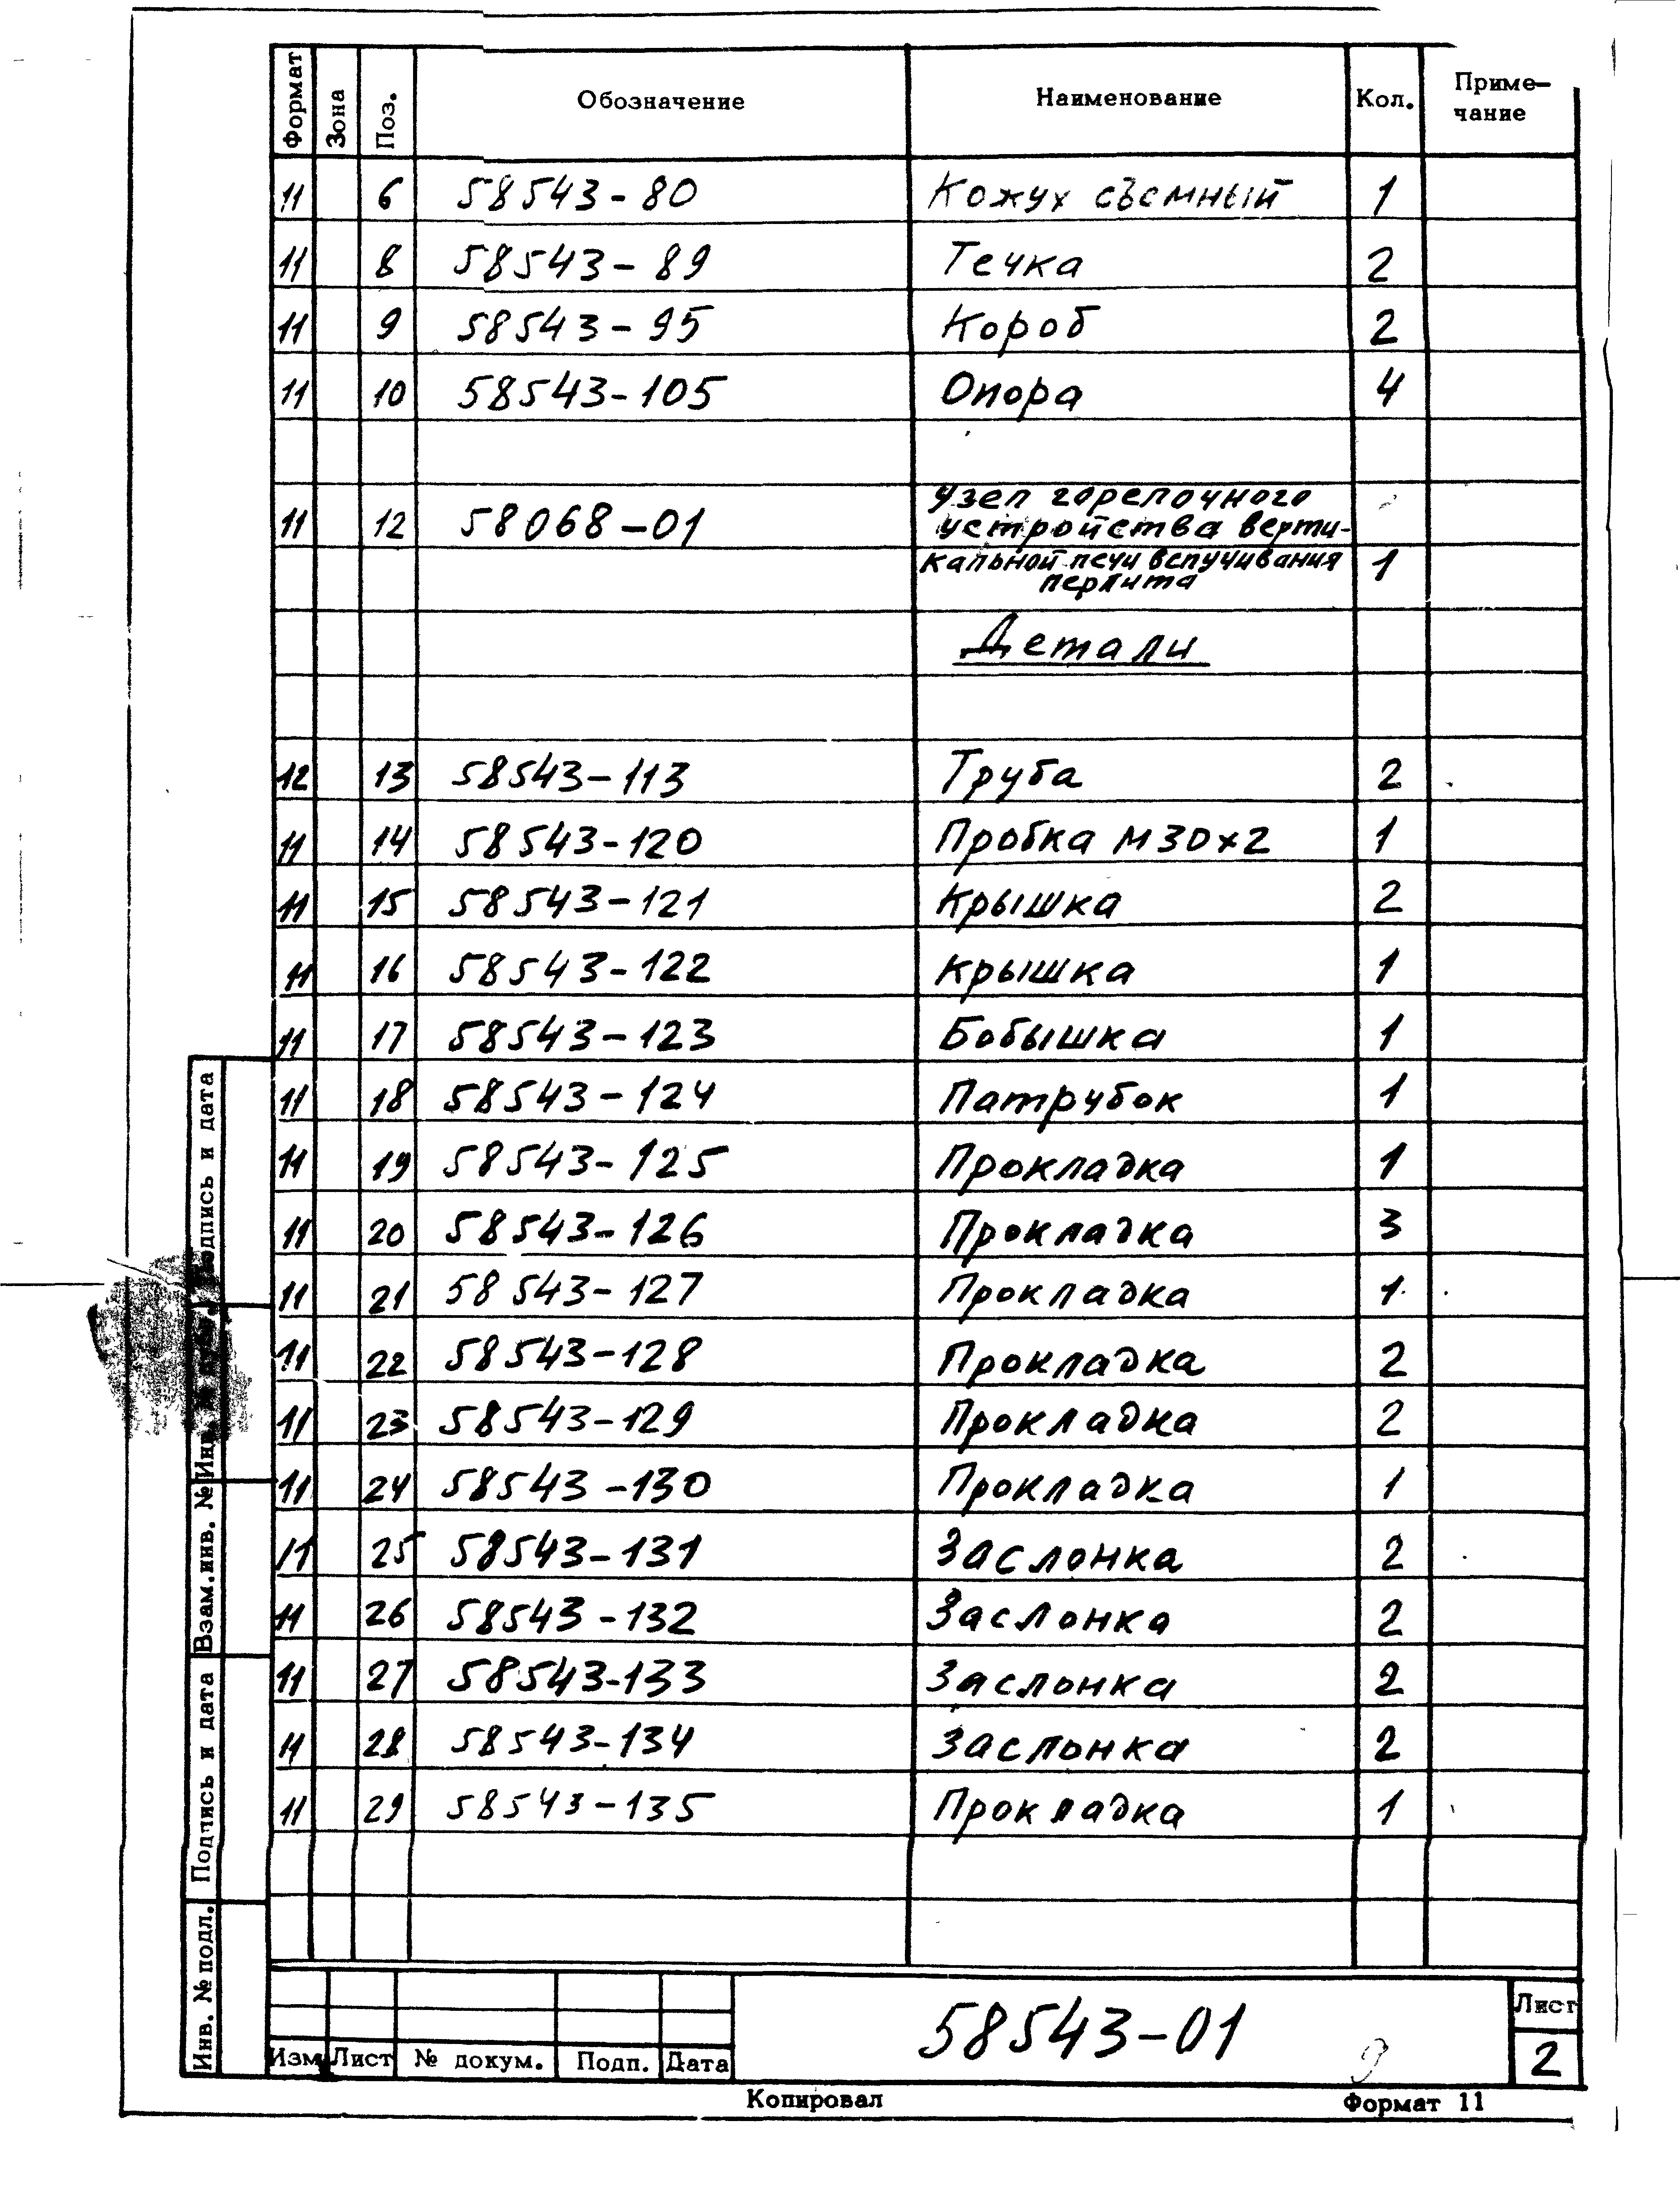 Формат Зона Поз. Обозначение Наименование Кол. Приме-
чание
11 6 58543-80 Кожух съемный 1
11 8 58543-89 Течка 2
11 9 58543-95 Короб 2
11 10 58543-105 Опора 4
узел горелочного
11 12 58068-01 устройства верти-
кальной печи вспучивания 1
перлита
Детали
12 13 58543-113 Труба 2
11 14 58543-120 Пробка М30х2 1
11 15 58543-121 Крышка 2
11 16 58543-122 крышка 1
11 17 58543-123 Бобышка 1
11 18 58543-124 Патрубок 1
11 19 58543-125 Прокладка 1
11 20 58543-126 Прокладка 3
11 21 58543-127 Прокладка 1
11 22 58543-128 Прокладка 2
11 23 58543-129 Прокладка 2
11 24 58543-130 Прокладка 1
11 25 58543-131 Заслонка 2
11 26 58543-132 Заслонка 2
11 27 58543-133 Заслонка 2
11 28 58543-134 Заслонка 2
11 29 58543-135 Прокладка 1
Подпись и дата
Взам.инв. №
Подпись и дата
Инв. № подл.
Изм Лист № докум. Подп. Дата
58543-01
Лист
2
Копировал Формат 11